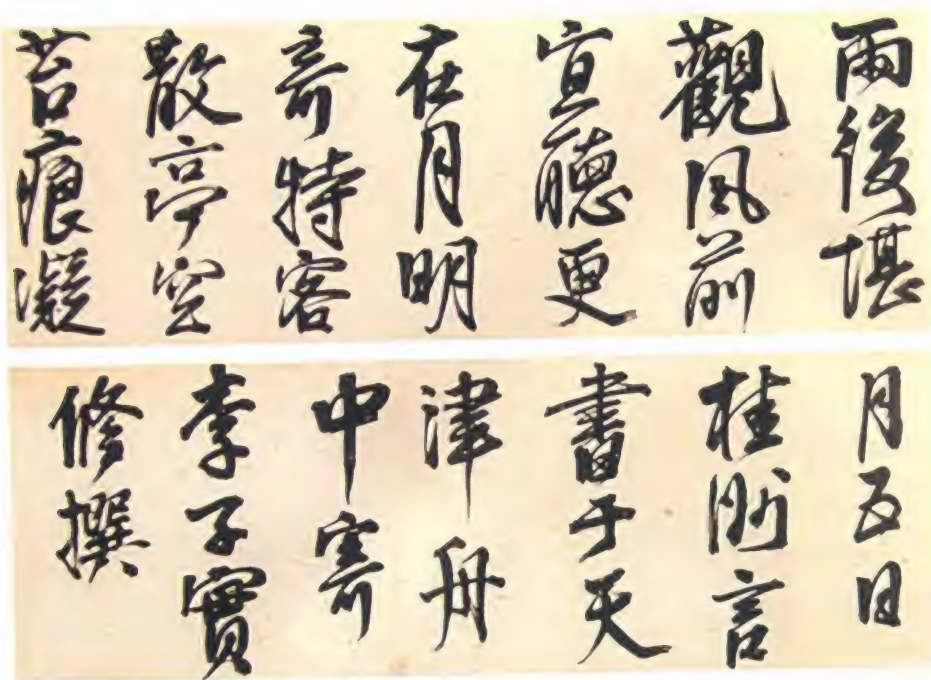 雨後堪
觀風前
宜聽更
在月明
奇特客
散亭空
苔痕凝
月五日
桂洲言
書于天
津舟
中寄
李子實
修撰